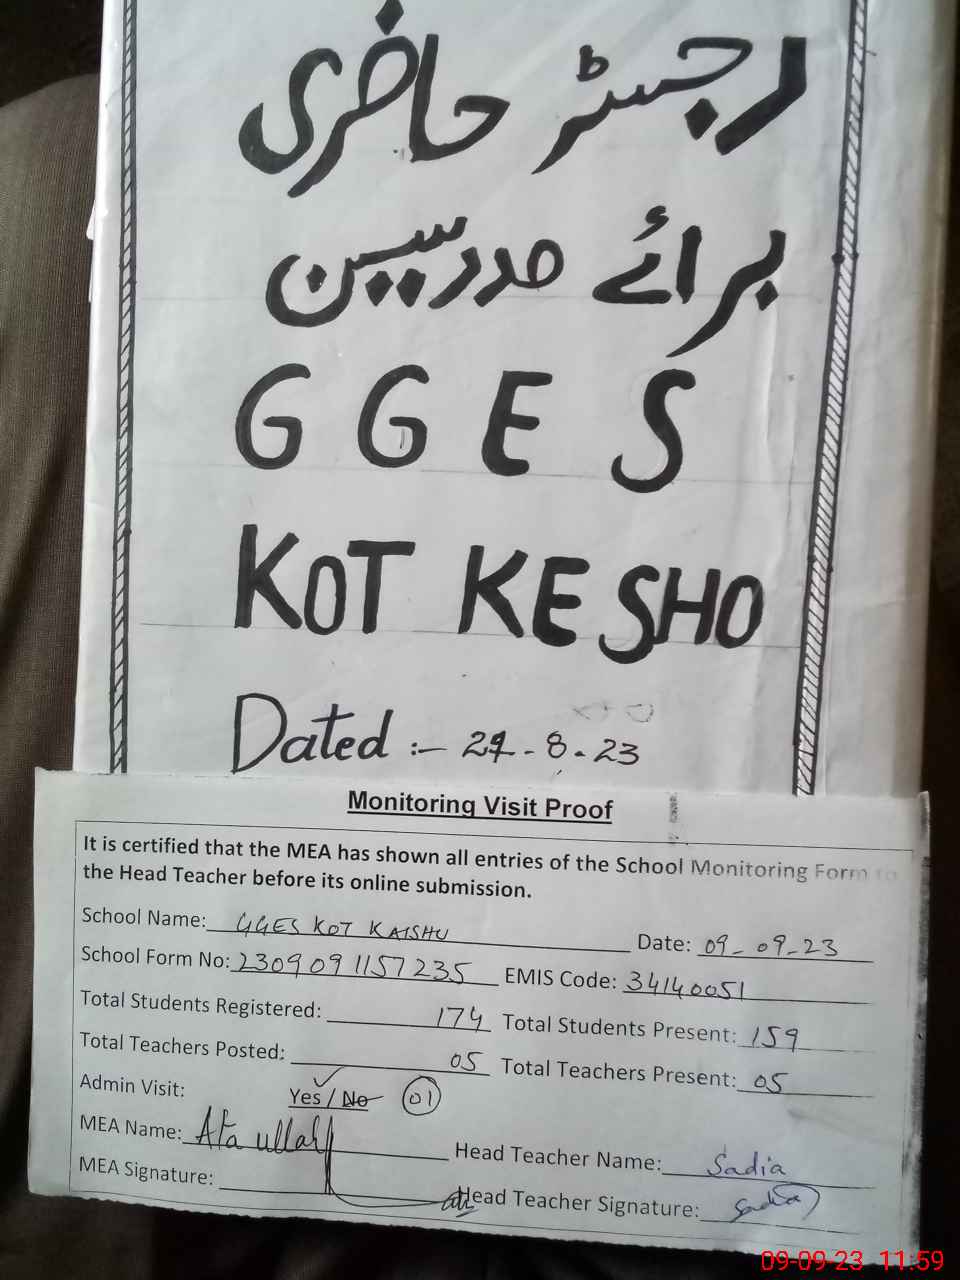 رجسٹر حاضری
برائے مدرسین
G G E S
KOT KESHO
Dated :- 24-8-23
Monitoring Visit Proof
It is certified that the MEA has shown all entries of the School Monitoring Form to
the Head Teacher before its online submission.
School Name: GGES KOT KAISHU Date: 09-09-23
School Form No: 230909115 7235 EMIS Code: 34140051
Total Students Registered: 174 Total Students Present: 159
Total Teachers Posted: 05 Total Teachers Present: 05
Admin Visit: Yes / No 01
MEA Name: Ata ullah Head Teacher Name: Sadia
MEA Signature: Head Teacher Signature: Sadia
09-09-23 11:59